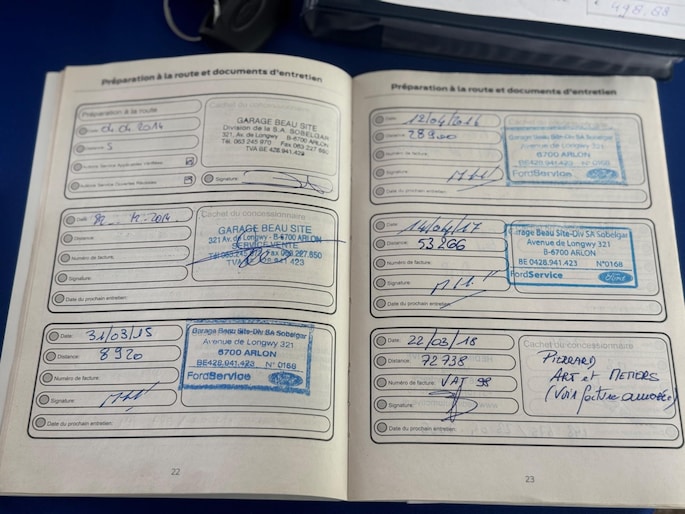 498.88
Préparation à la route et documents d'entretien
Préparation à la route
Date:
2014
Distance:
5
Autres Service Applicables Vérifiées
Autres Service Ouvertes Révisées
Cachet du concessionnaire
GARAGE BEAU SITE
Division de la S.A. SOBELGAR
321, Av. de Longwy B-6700 ARLON
Tél. 063 245 970 Fax 063 227 650
TVA BE 428.941.423
Signature:
Date:
2014
Distance:
Numéro de facture:
Signature:
Date du prochain entretien:
Cachet du concessionnaire
GARAGE BEAU SITE
321 Av. de Longwy - B-6700 ARLON
SERVICE VENTE
Fax 063.227.650
TVA 428.941.423
Date: 31/03/15
Distance: 8920
Numéro de facture:
Signature:
Date du prochain entretien:
Garage Beau Site-Div SA Sobelgar
Avenue de Longwy 321
6700 ARLON
BE428.941.423 N° 0168
FordService
Ford
22
Préparation à la route et documents d'entretien
Date: 12/04/2016
Distance: 28920
Numéro de facture:
Signature:
Date du prochain entretien:
Garage Beau Site-Div SA Sobelgar
Avenue de Longwy 321
6700 ARLON
BE428.941.423 N° 0168
FordService
Ford
Date: 14/04/17
Distance: 53266
Numéro de facture:
Signature:
Date du prochain entretien:
Garage Beau Site-Div SA Sobelgar
Avenue de Longwy 321
B-6700 ARLON
BE 0428.941.423 N°0168
FordService
Ford
Date: 22/03/18
Distance: 72738
Numéro de facture: VAJ 98
Signature:
Date du prochain entretien:
Cachet du concessionnaire
PIERRARD
ART et METIERS
(Voir facture annexée)
23